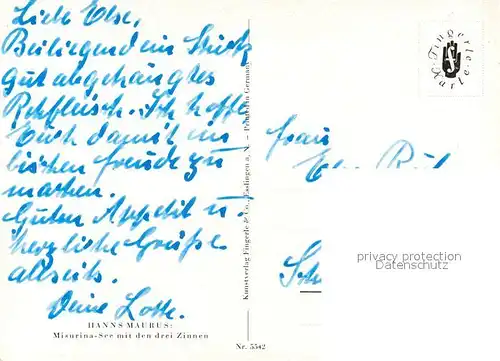 Liebe Else,
Beiliegend ein Stück
gut abgehängtes
Rehfleisch. Ich hoffe
Euch damit ein
bischen Freude zu
machen.
Guten Appetit u.
herzliche Grüße
allseits.
Deine Lotte.
HANNS MAURUS:
Misurina-See mit den drei Zinnen
Kunstverlag Fingerle & Co., Esslingen a. N. – Printed in Germany
Nr. 5542
Fingerle
Karte
Frau
privacy protection
Datenschutz